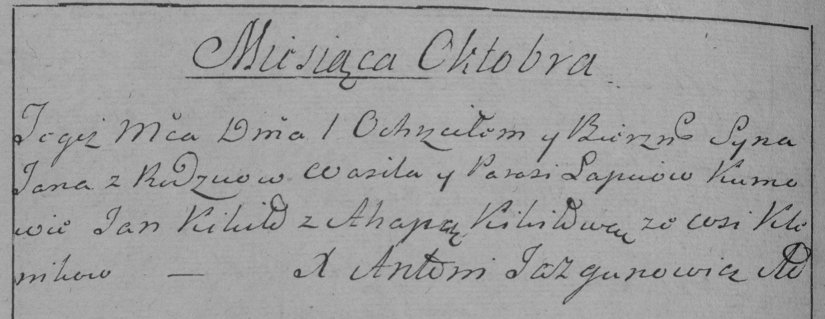 Miesiąca Oktobra
Tegiż Mca Dnia 1 Ochrzciłem y Bierzm Syna
Jana z Rodzicow Wasila y Parasi Łapciow Kumo
wie Jan Kikiłł z Ahapą Kikiłłwą ze wsi Kle
nikow — X Antoni Jazgunowicz